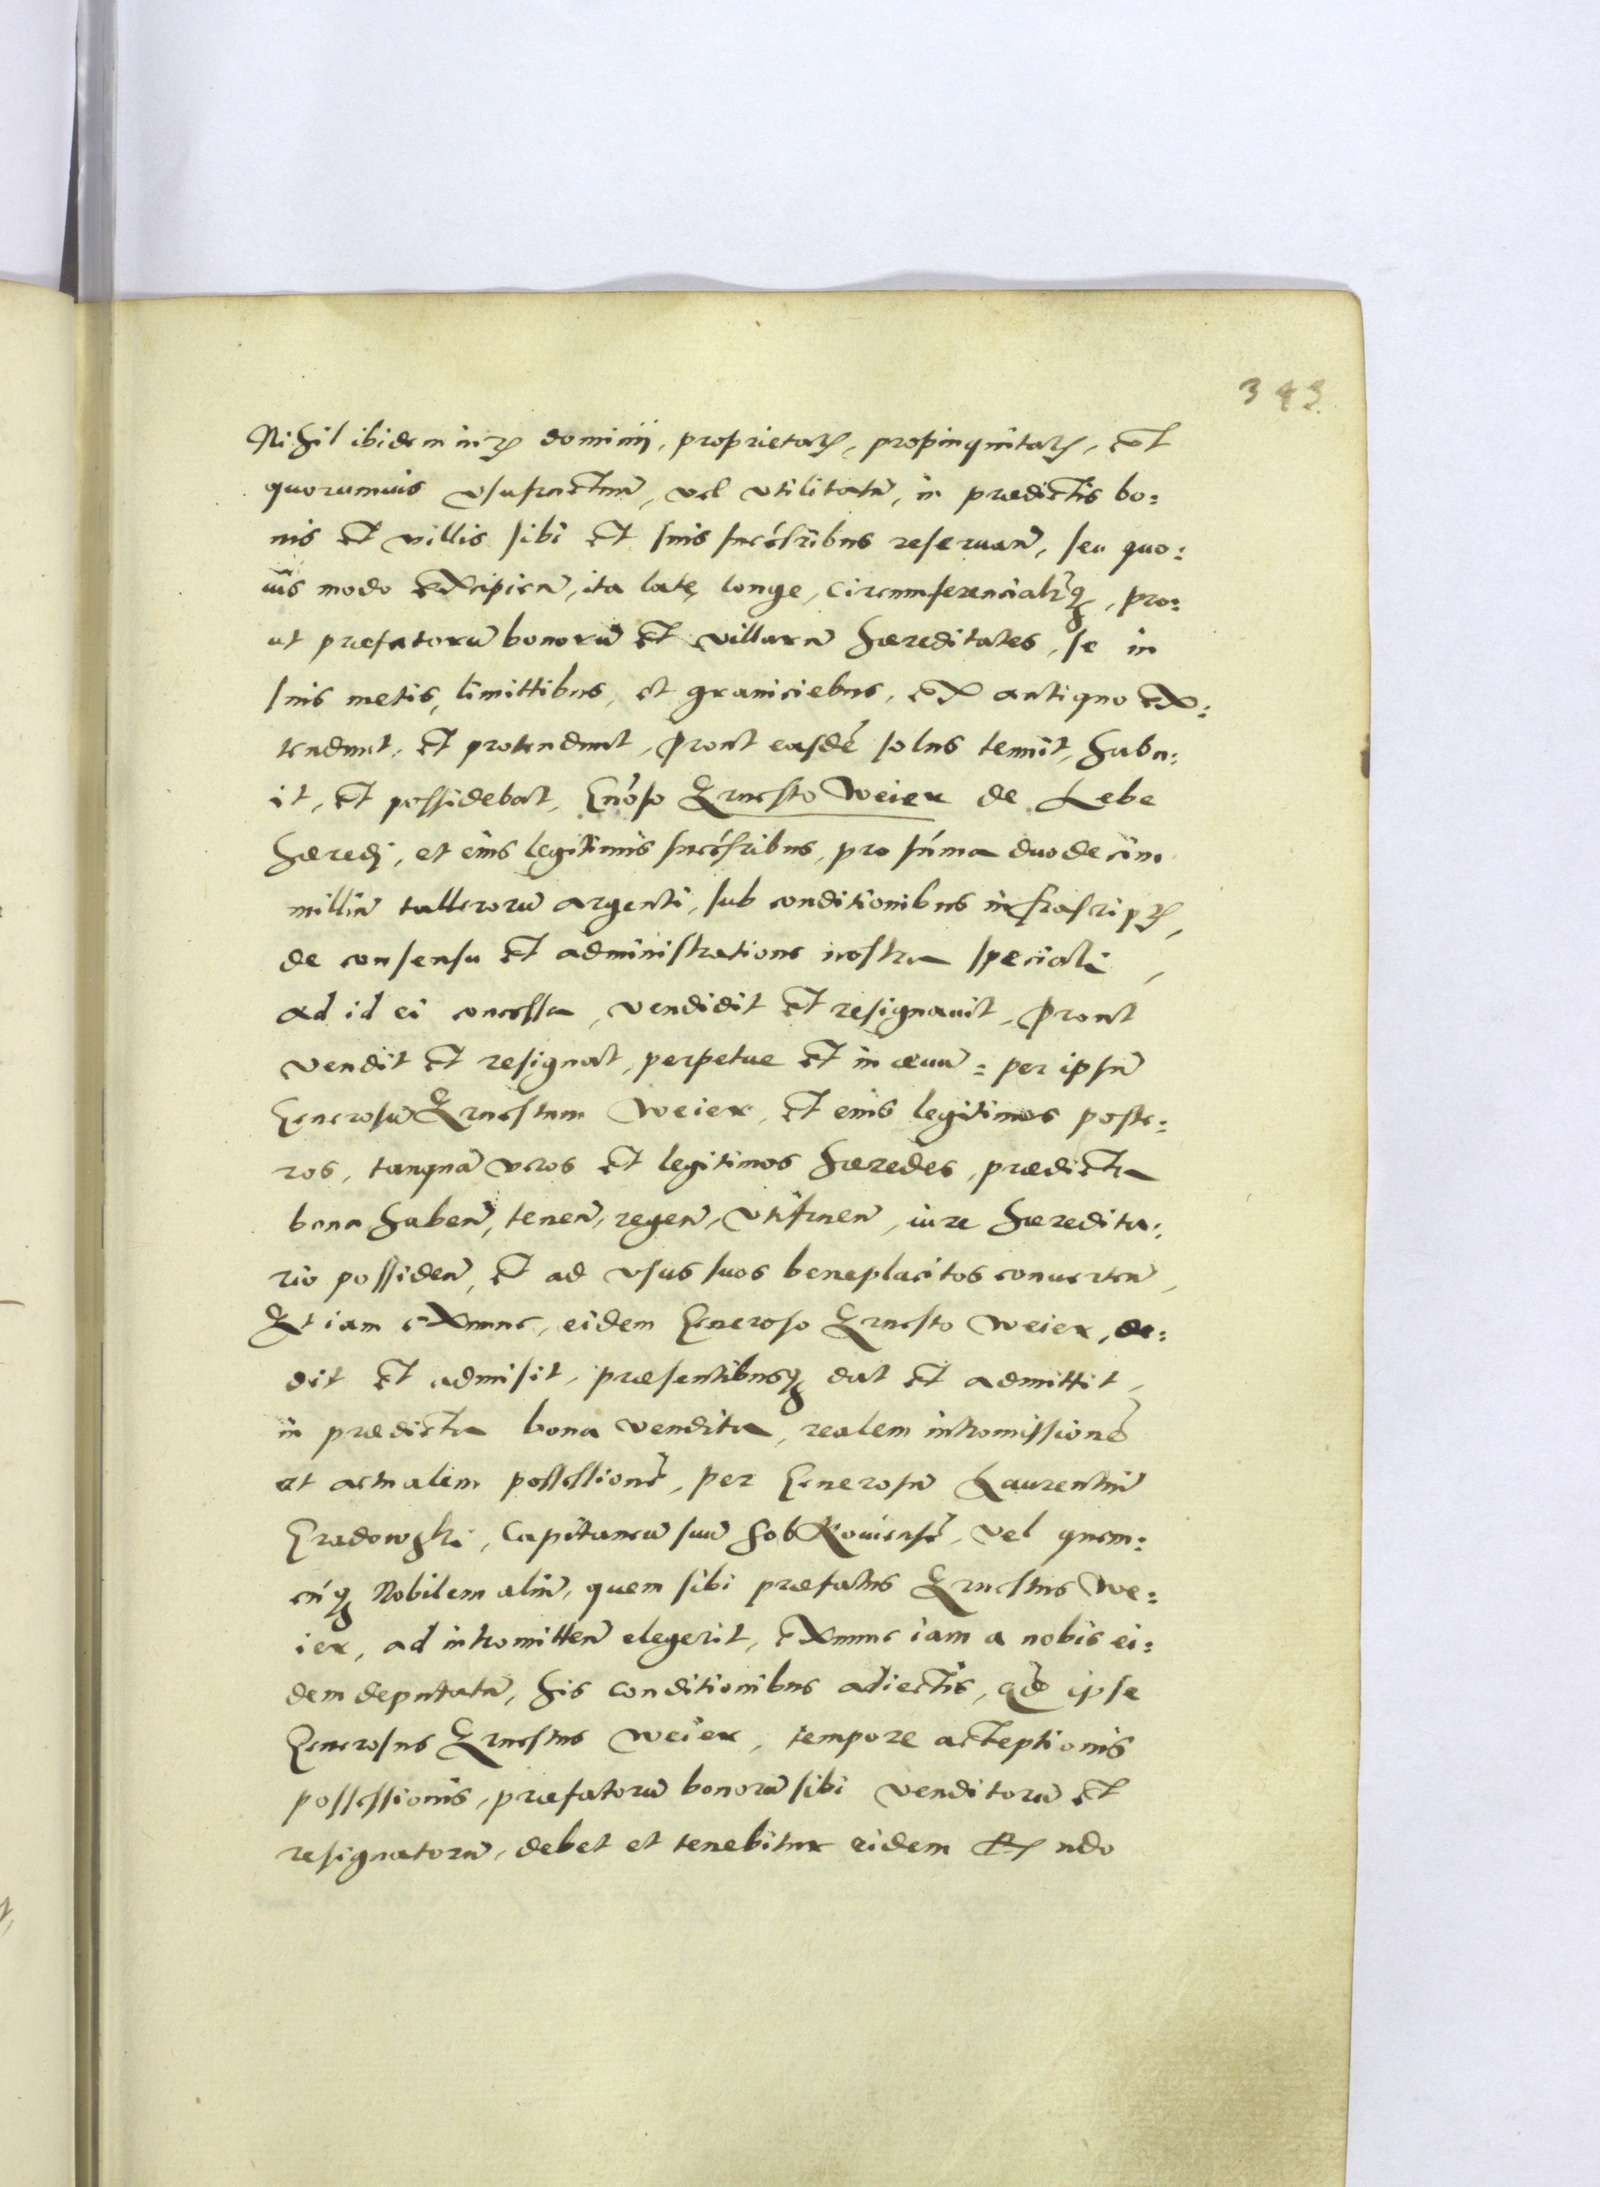 343
Nihil ibidem iuris dominij, proprietatis, propinquitatis, et
quorumuis vsufructuũ, vel vtilitatũ, in prædictis bo:
nis et villis sibi et suis succéssribus reseruan̄, seu quo:
uis modo excipien̄, ita late, longe, circumferencialr̃q₃, pro:
ut præfatorũ bonorũ et villarũ hæreditates, se in
suis metis, limittibus, et graniciebus, ex antiquo ex:
tendunt, et protendunt, Prout easdẽ solus tenuit, habu:
it, et possidebat, Gnõso Ernesto Weier de Lebe
hæredj, et eius legitimis succéssribus, pro sũma duodecim
milliũ tallerorũ argenti, sub conditionibus infrascriptis,
de consensu et administratione nostra speciali,
ad id ei concessa, vendidit et resignauit, Prout
vendit et resignat, perpetue et in æuũ: per ipsũ
Generosũ Ernestum Weier, et eius legitimos poste:
ros, tanquã veros et legitimos hæredes, prædicta
bona haben̄, tenen̄, regen̄, vtifruen̄, iure hæredita:
rio possiden̄, et ad vsus suos beneplacitos conuerten̄,
Et iam exnunc, eidem Generoso Ernesto Weier, de:
dit et admisit, præsentibusq₃ dat et admittit,
in prædicta bona vendita, realem intromissionẽ
et actualem possessionẽ, per Generosũ Laurentiũ
Gradowski, Capitaneũ suũ Sobkouiensẽ, vel quem:
cũq₃ Nobilem aliũ, quem sibi præfatus Ernestus We:
ier, ad intromitten̄ elegerit, exnunc iam a nobis ei:
dem deputatũ, his conditionibus adiectis, qd̃ ipse
Generosus Ernestus Weier, tempore acceptionis
possessionis, præfatorũ bonorũ sibi venditorũ et
resignatorũ, debet et tenebitur eidem Rndo